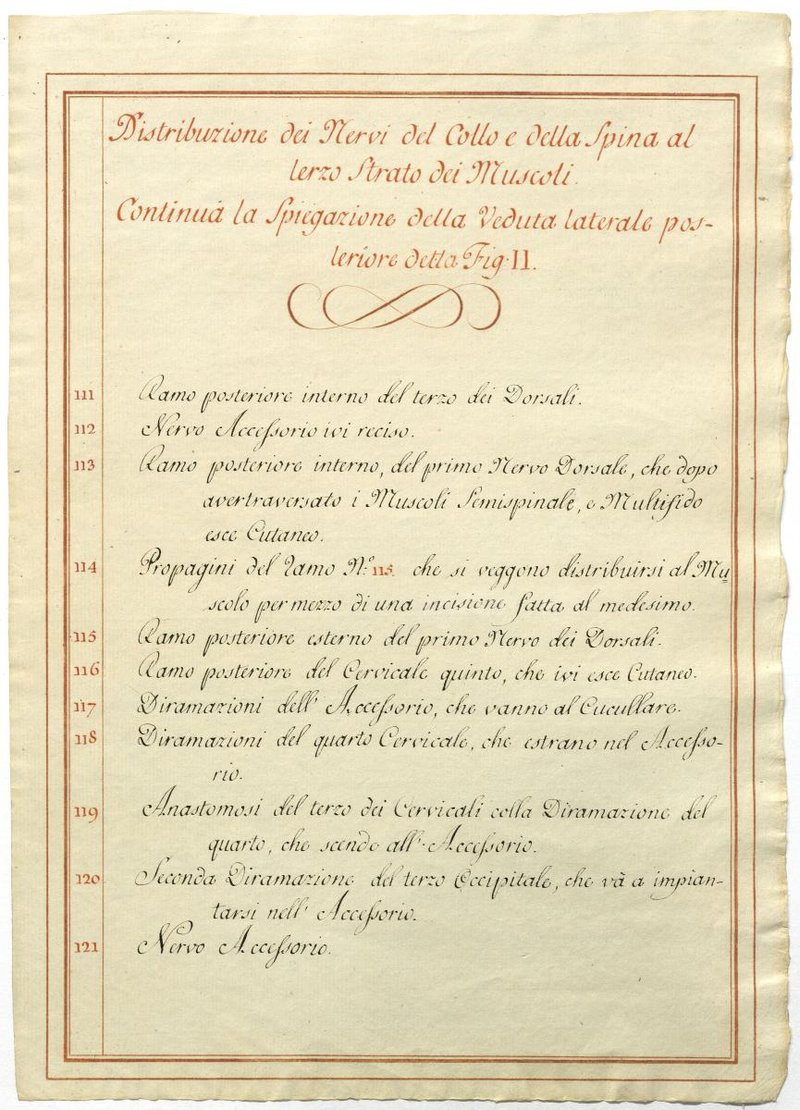 Distribuzione dei Nervi del Collo e della Spina al
terzo Strato dei Muscoli.
Continua la Spiegazione della Veduta laterale pos-
teriore detta Fig. II.
111 Ramo posteriore interno del terzo dei Dorsali.
112 Nervo Accessorio ivi reciso.
113 Ramo posteriore interno, del primo Nervo Dorsale, che dopo
avertraversato i Muscoli Semispinale, e Multifido
esce Cutaneo.
114 Propagini del Ramo N.º 115. che si veggono distribuirsi al Mu
scolo per mezzo di una incisione fatta al medesimo.
115 Ramo posteriore esterno del primo Nervo dei Dorsali.
116 Ramo posteriore del Cervicale quinto, che ivi esce Cutaneo.
117 Diramazioni dell' Accessorio, che vanno al Cucullare.
118 Diramazioni del quarto Cervicale, che estrano nel Accesso-
rio.
119 Anastomosi del terzo dei Cervicali colla Diramazione del
quarto, che scende all' Accessorio.
120 Seconda Diramazione del terzo Occipitale, che và a impian-
tarsi nell' Accessorio.
121 Nervo Accessorio.